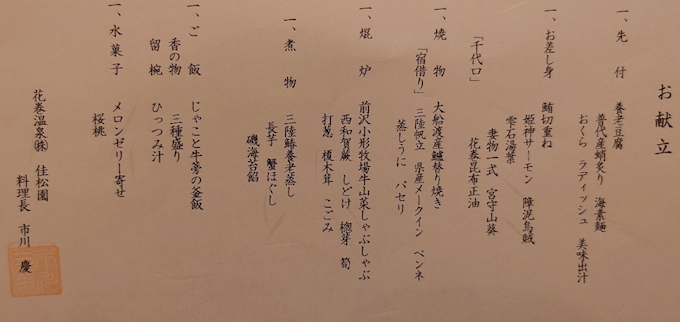 お献立
一、先付 養老豆腐
普代産蛸炙り 海素麺
おくら ラディッシュ 美味出汁
一、お差し身 鮪切重ね
姫神サーモン 障泥烏賊
雫石湯葉
妻物一式 宮守山葵
「千代口」 花巻昆布正油
一、焼物 大船渡産鱸香り焼き
「宿借り」 三陸帆立 県産メークイン ペンネ
蒸しうに パセリ
一、焜炉 前沢小形牧場牛山菜しゃぶしゃぶ
西和賀蕨 しどけ 楤芽 筍
打葱 榎木茸 こごみ
一、煮物 三陸鰆養老蒸し
長芋 蟹ほぐし
磯海苔餡
一、ご飯 じゃこと牛蒡の釜飯
香の物 三種盛り
留椀 ひっつみ汁
一、水菓子 メロンゼリー寄せ
桜桃
花巻温泉㈱ 佳松園
料理長 市川 慶